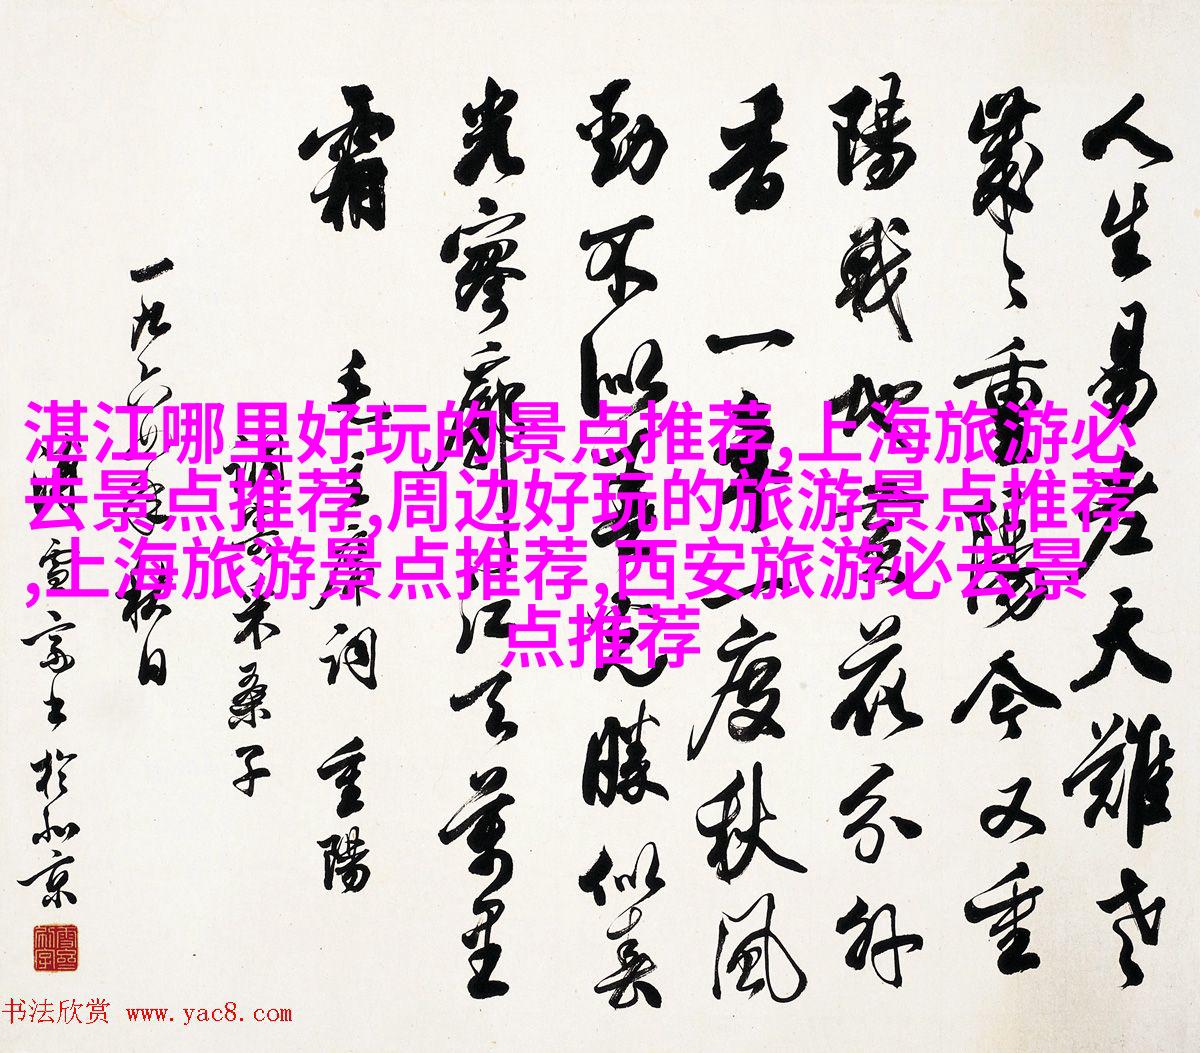 人生易老天難老
歲々重陽今又重
陽戰地黃花分外
香 一年一度秋風
勁不似春光勝似春
光寥廓江天萬里
霜 毛主席詞 重陽
調寄采桑子
一九六年秋日
書於北京
湛江哪里好玩的景点推荐,上海旅游必
去景点推荐,周边好玩的旅游景点推荐
,上海旅游景点推荐,西安旅游必去景
点推荐
书法欣赏 www.yac8.com